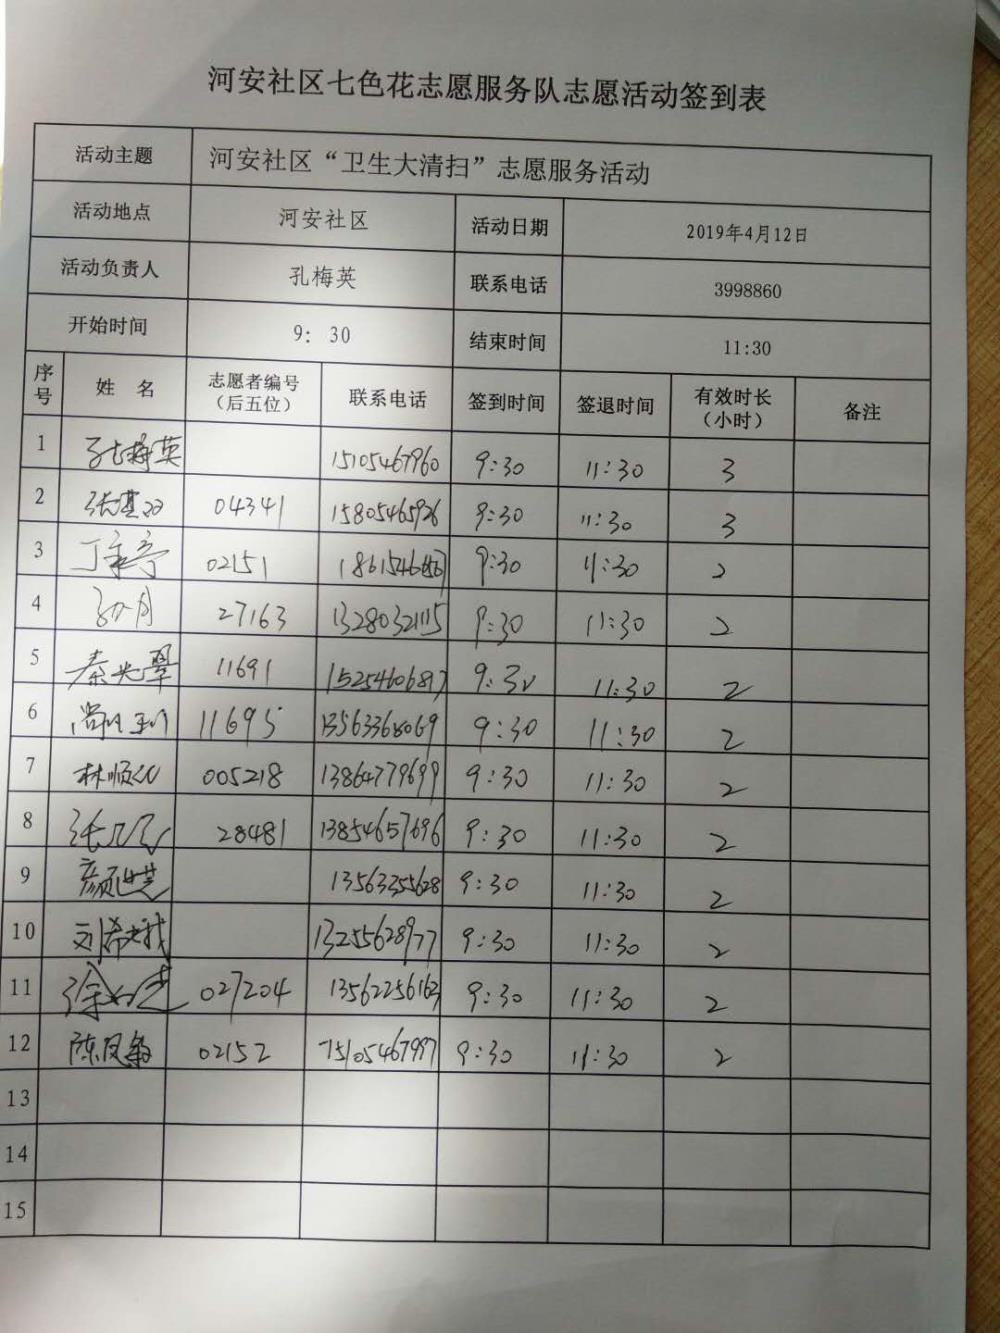 河安社区七色花志愿服务队志愿活动签到表
活动主题 河安社区“卫生大清扫”志愿服务活动
活动地点 河安社区 活动日期 2019年4月12日
活动负责人 孔梅英 联系电话 3998860
开始时间 9：30 结束时间 11:30
序号 姓 名 志愿者编号（后五位） 联系电话 签到时间 签退时间 有效时长（小时） 备注
1 孔梅英 15105467960 9:30 11:30 3
2 04341 15805465926 9:30 11:30 3
3 02151 9:30 11:30 2
4 孙月 27163 13280321115 9:30 11:30 2
5 秦光翠 11691 15254606817 9:30 11:30 2
6 11695 13563368069 9:30 11:30 2
7 005218 13864779699 9:30 11:30 2
8 28481 13854657696 9:30 11:30 2
9 13563355628 9:30 11:30 2
10 13255628977 9:30 11:30 2
11 027204 13562256163 9:30 11:30 2
12 02152 15105467997 9:30 11:30 2
13
14
15